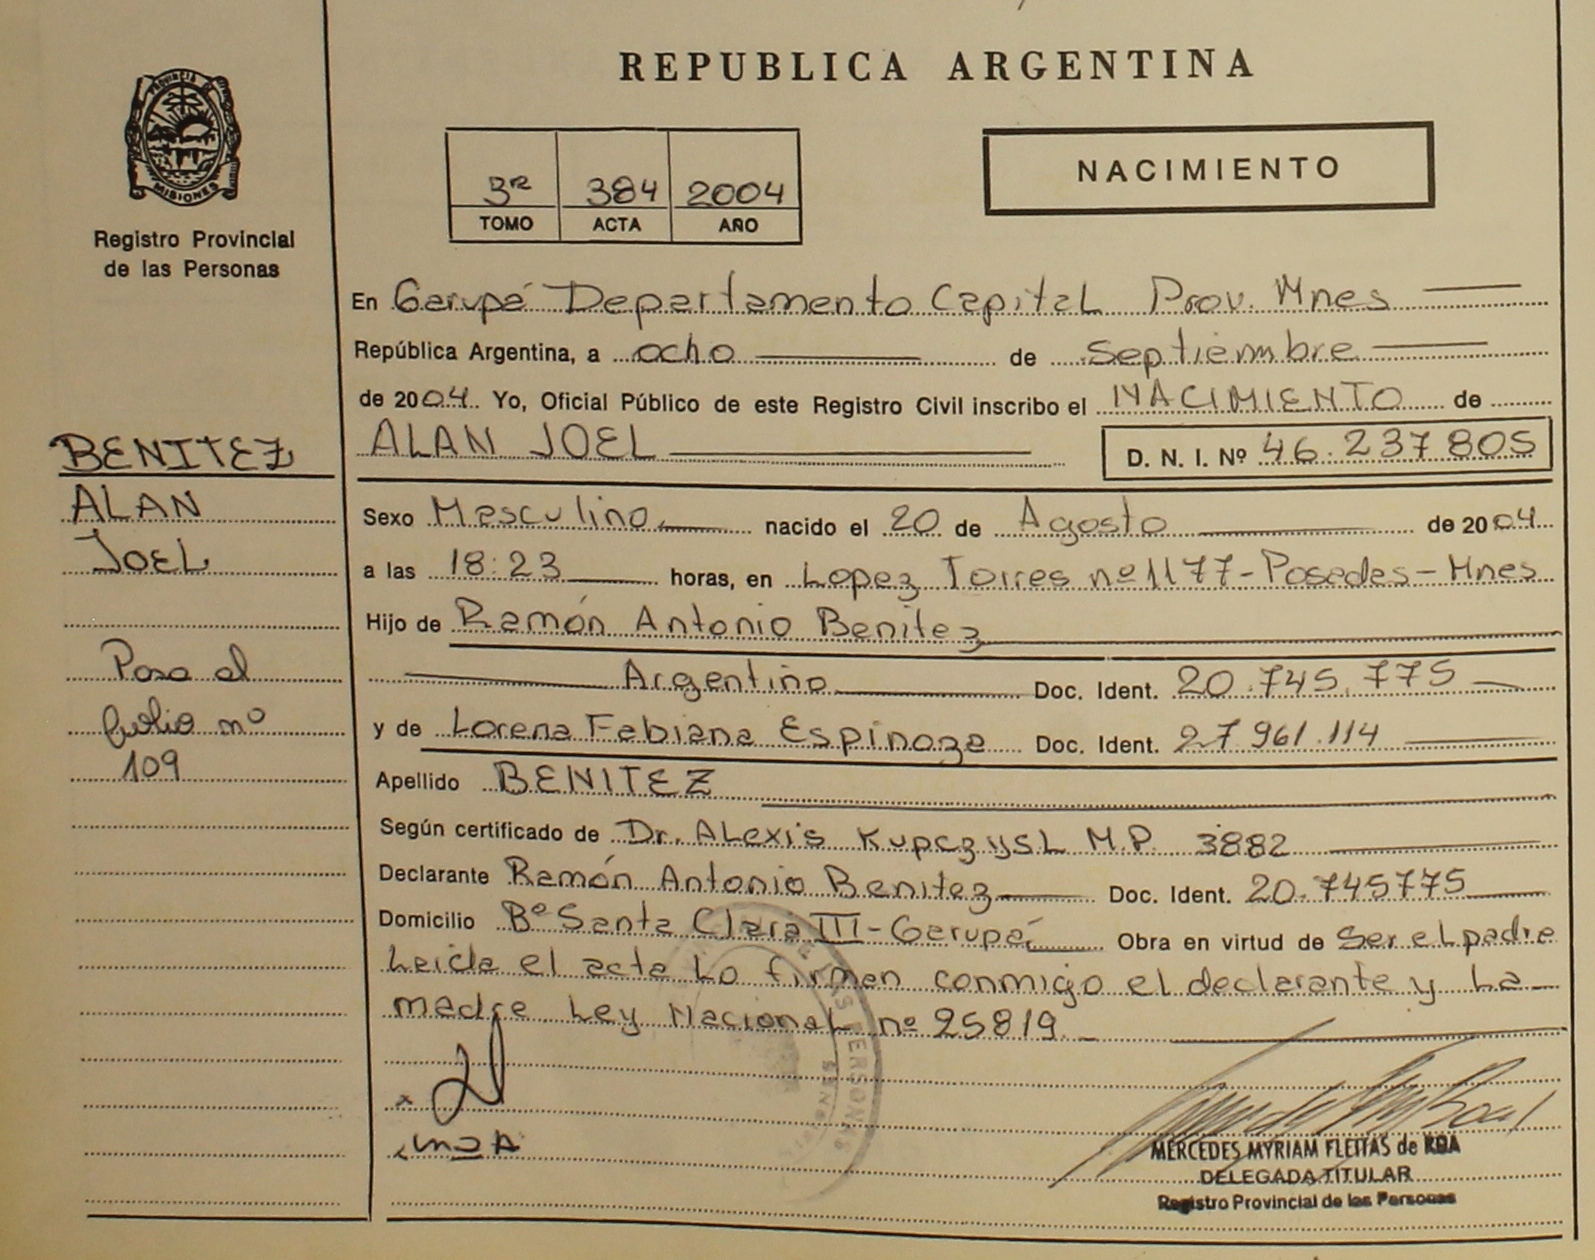 REPUBLICA ARGENTINA
PROVINCIA DE
MISIONES
Registro Provincial
de las Personas
3ra 384 2004
TOMO ACTA AÑO
NACIMIENTO
En Garupá Departamento Capital Prov. Mnes
República Argentina, a ocho de Septiembre
de 2004. Yo, Oficial Público de este Registro Civil inscribo el NACIMIENTO de
ALAN JOEL D. N. I. Nº 46.237805
BENITEZ
ALAN
JOEL
Pasa al
folio nº
109
Sexo Masculino nacido el 20 de Agosto de 2004
a las 18:23 horas, en Lopez Torres nº 1177-Posadas-Mnes
Hijo de Ramón Antonio Benitez
Argentino Doc. Ident. 20.745.775
y de Lorena Fabiana Espinoza Doc. Ident. 27.961.114
Apellido BENITEZ
Según certificado de Dr. Alexis Kupczysl M.P. 3882
Declarante Ramón Antonio Benitez Doc. Ident. 20.745775
Domicilio Bº Santa Clara III-Garupá Obra en virtud de Ser el padre
Leida el acta Lo firman conmigo el declarante y La
madre Ley Nacional nº 25819.
PERSONAS
MERCEDES MYRIAM FLEITAS de ROA
DELEGADA TITULAR
Registro Provincial de las Personas